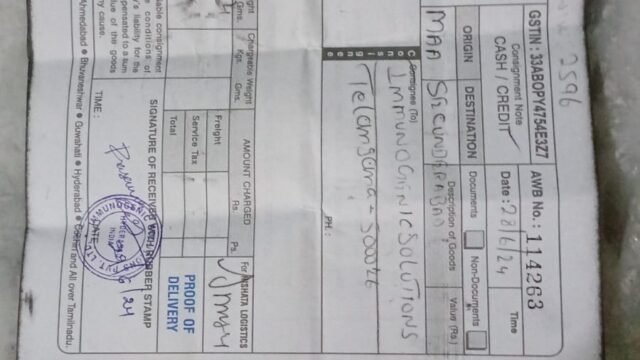 2596
GSTIN : 33ABOPY4754E3Z7
AWB No. : 114263
Consignment Note
CASH / CREDIT
Date : 28/6/24
Time
ORIGIN
DESTINATION
Documents
Non-Documents
Description of Goods
Value (Rs.)
MAA
SECUNDERABAD
Consignee (To)
IMMUNOGENIC SOLUTIONS
Telangana -
PH. :
Chargeable Weight
Kgs.
Gms.
AMOUNT CHARGED
Rs.
Ps.
Freight
Service Tax
Total
For AKSHATA LOGISTICS
PROOF OF
DELIVERY
able consignment
e conditions of
y's liability for the
pensated to a sum
lue of the goods
y cause.
SIGNATURE OF RECEIVER WITH RUBBER STAMP
TIME :
DATE
INDIA
Ahmedabad ● Bhuvaneshwar ● Guwahati ● Hyderabad ● Cochin and All over Tamilnadu.